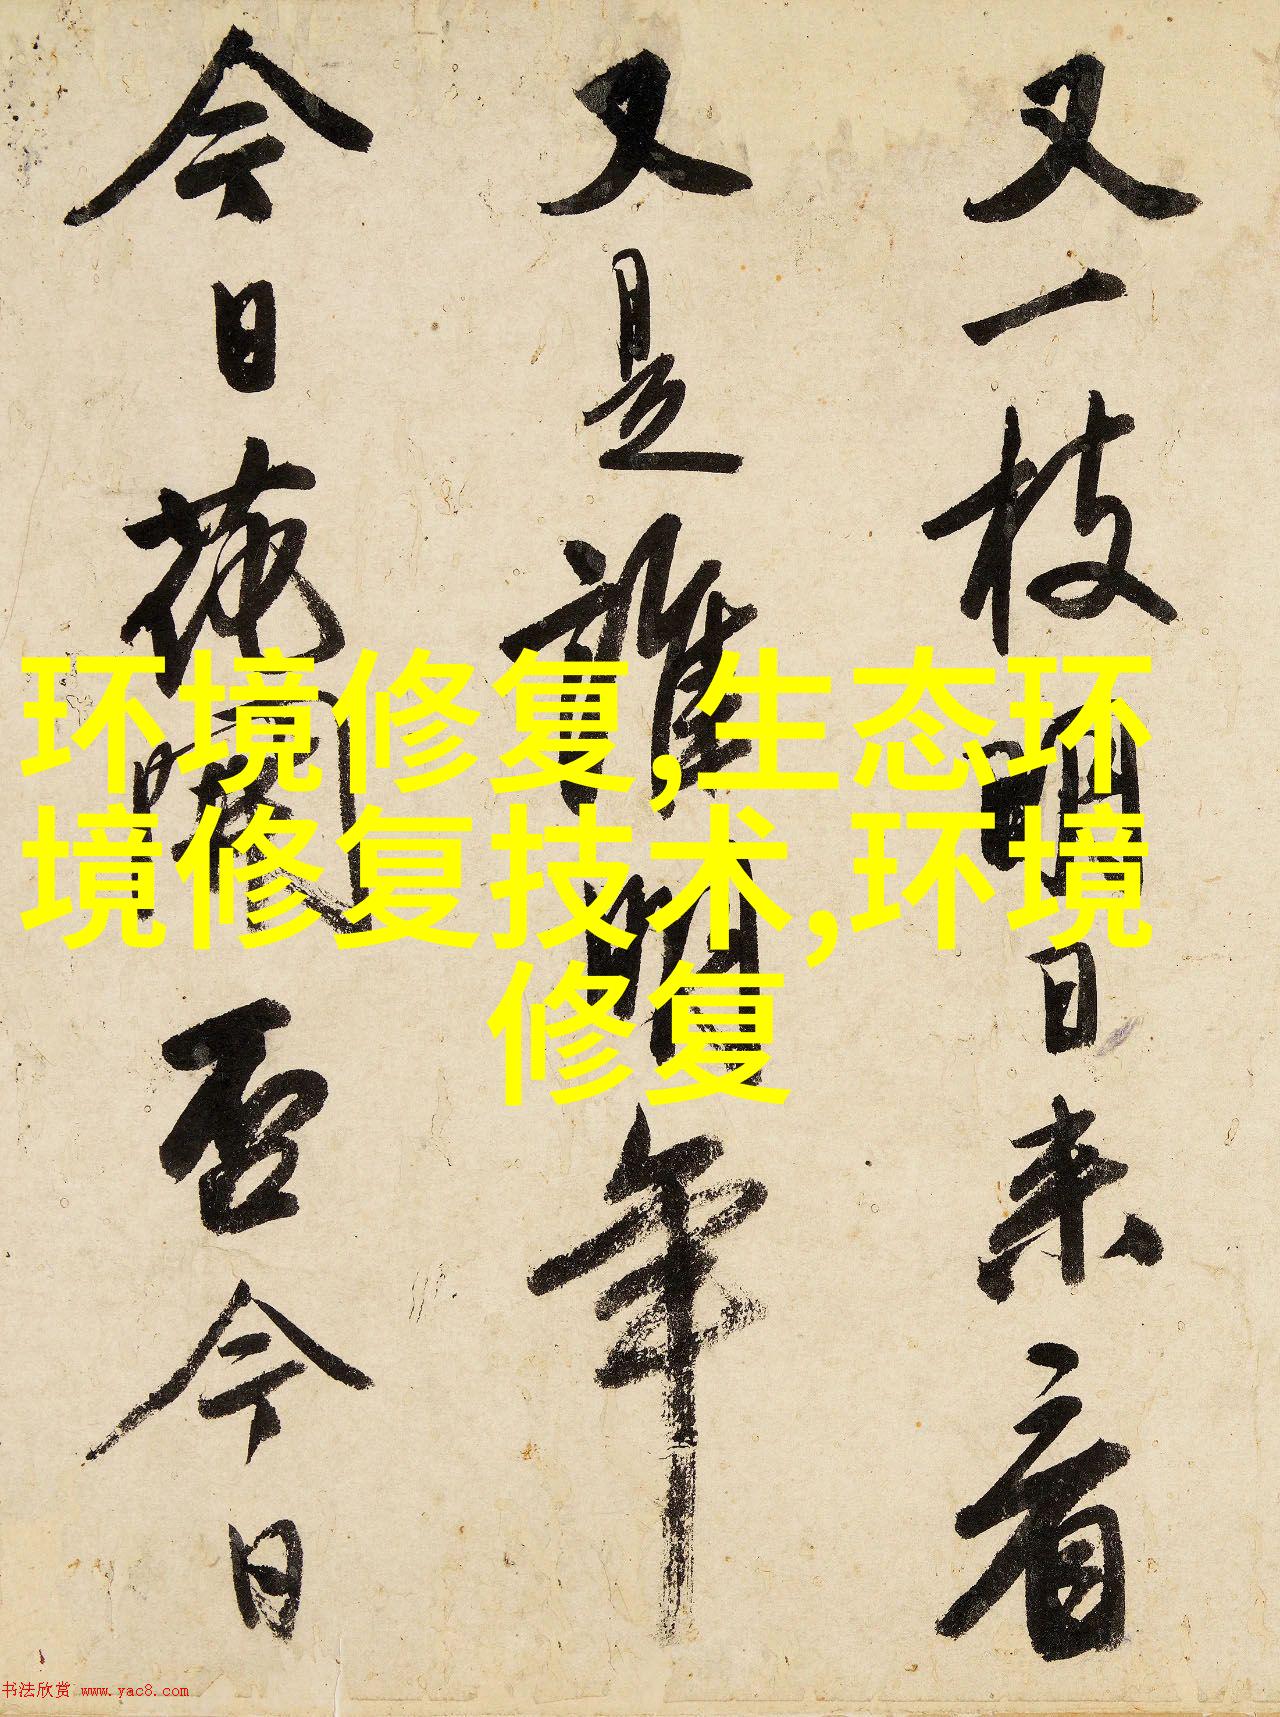 又一枝明日来看
又是誰明年
今日花開否今日
环境修复,生态环
境修复技术,环境
修复
书法欣赏 www.yac8.com